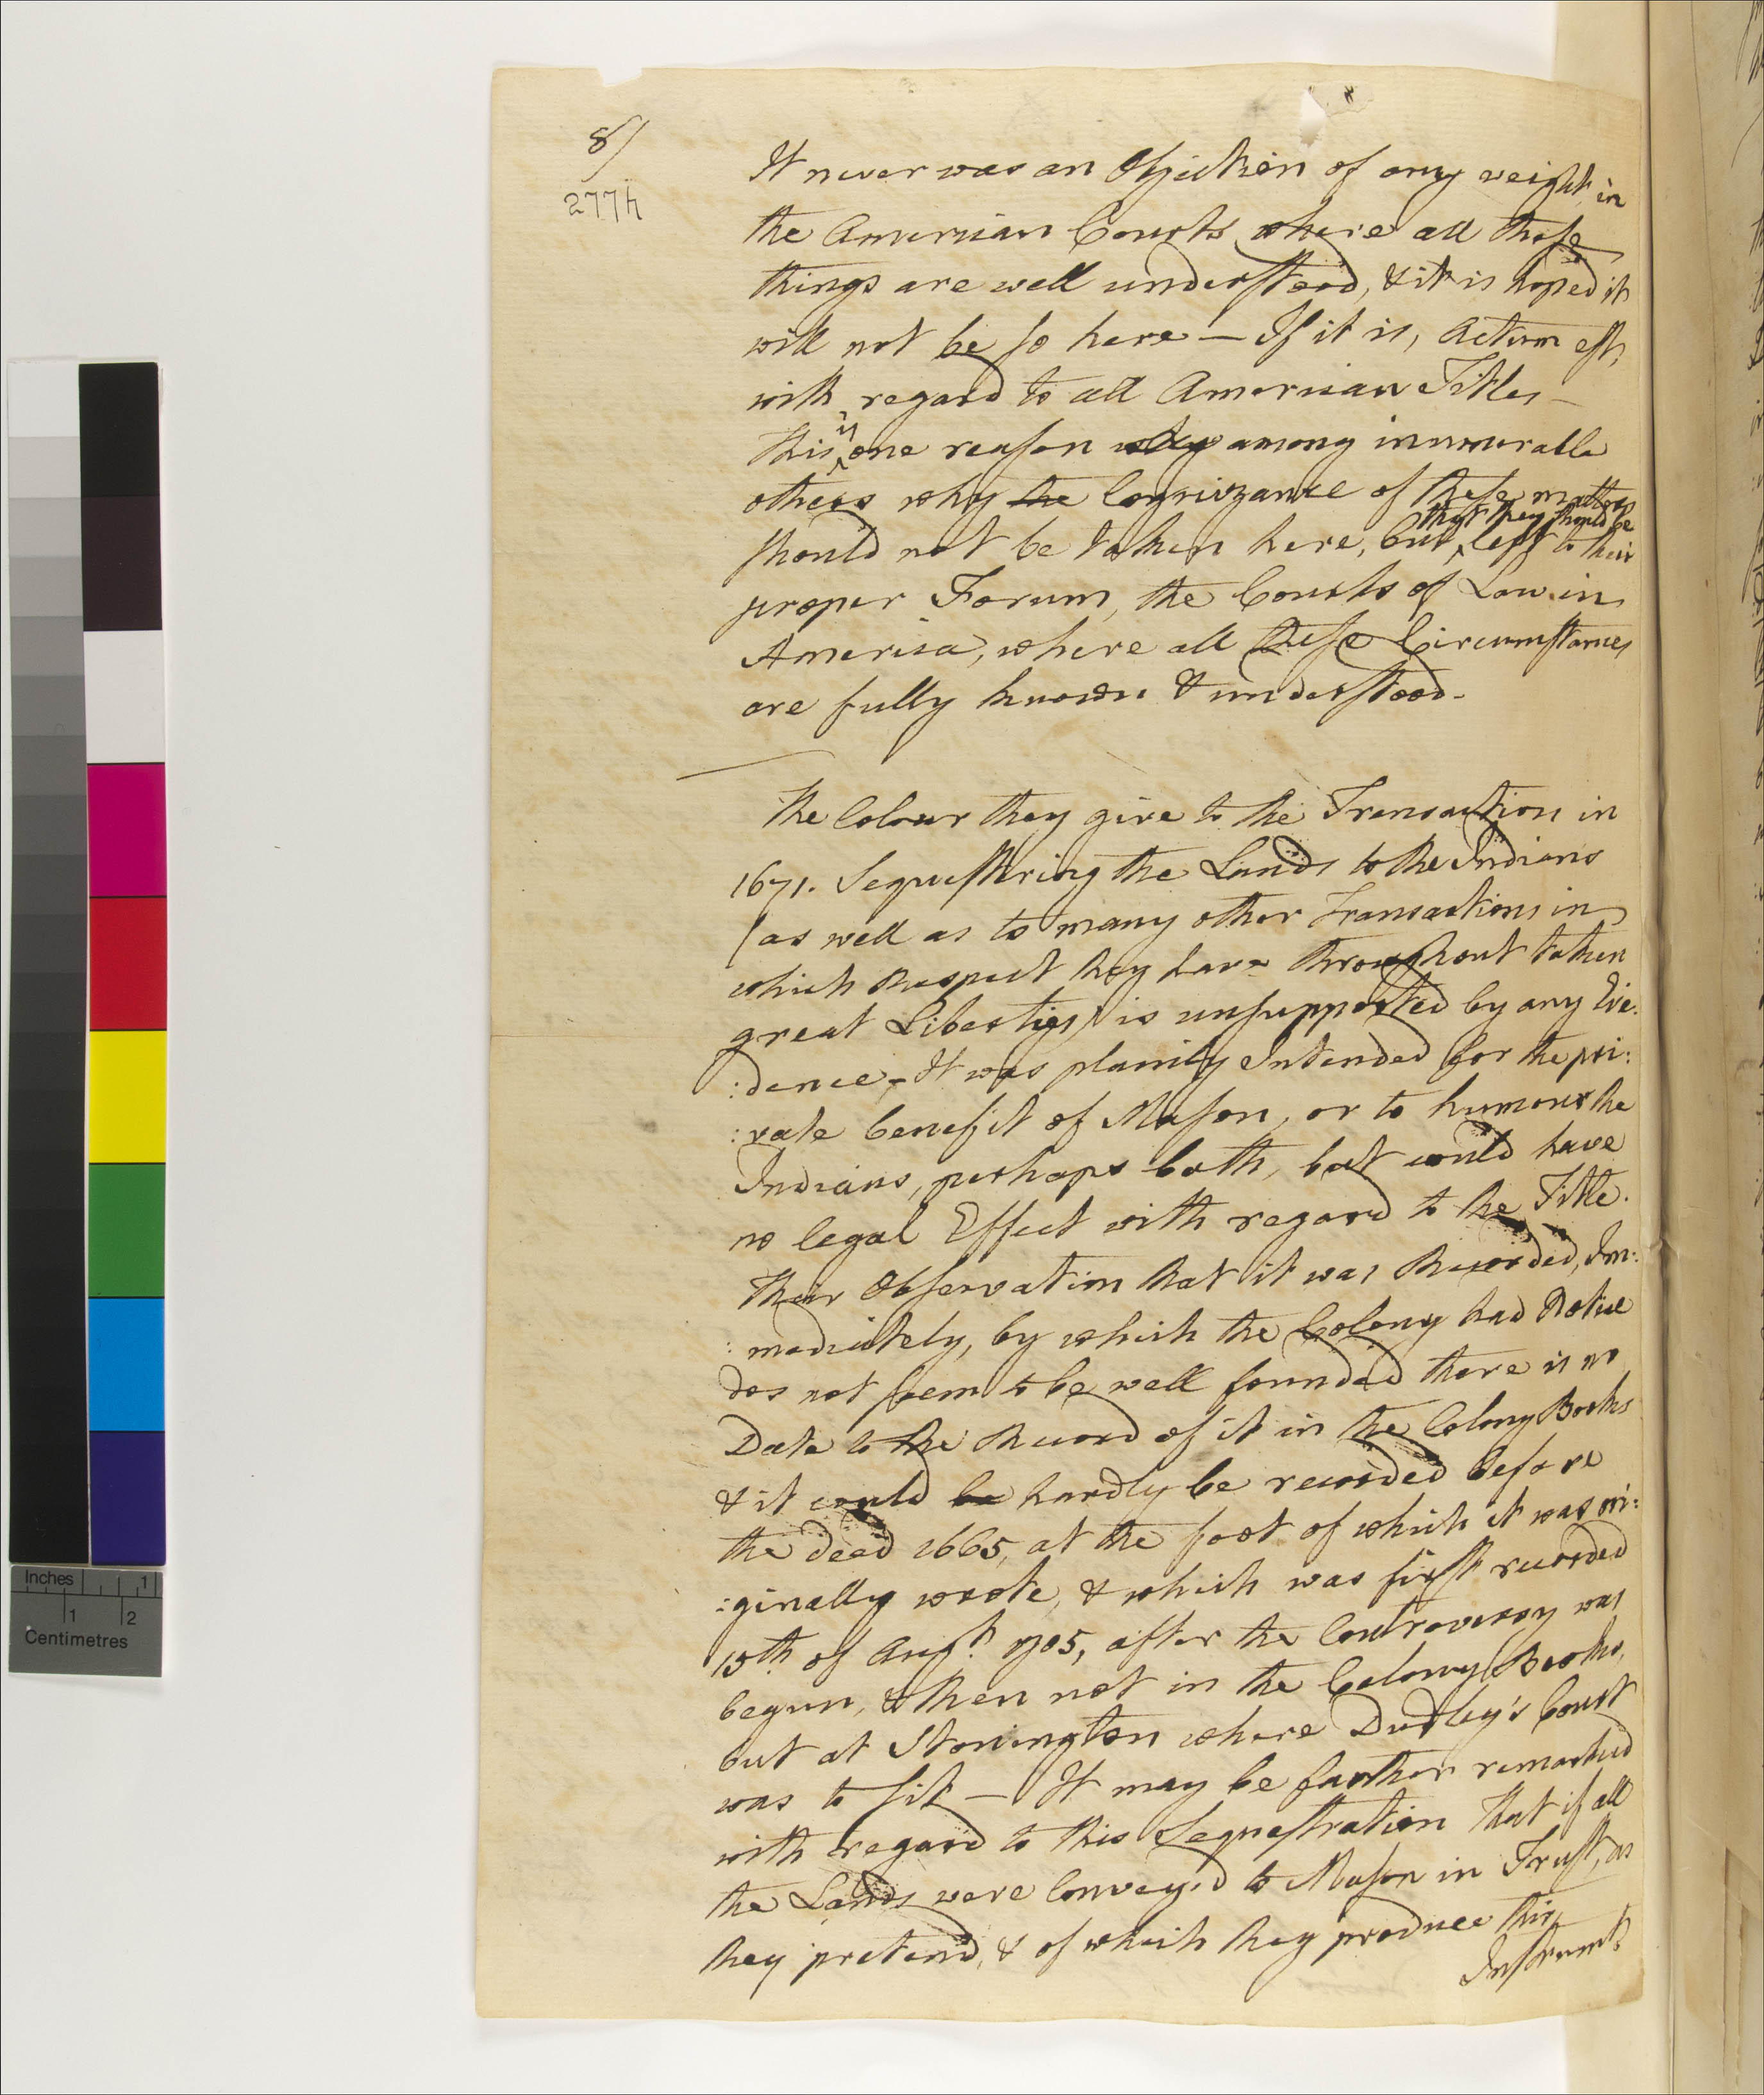 8/
277h
It never was an Objection of any weight in
the American Courts where all these
things are well understood, & it is hoped it
will not be so here — If it is, Actum est,
with regard to all American Titles —
This is one reason why among innumerable
others why the Cognizance of these matters
that they should be
should not be taken here, but left to their
proper Forum, the Courts of Law in
America, where all these Circumstances
are fully known & understood.
The Colour they give to the Transaction in
1671. Sequestering the Lands to the Indians
(as well as to many other Transactions in
which Respect they have throughout taken
great Liberties) is unsupported by any Evi:
:dence — It was plainly Intended for the pri:
:vate benefit of Mason, or to humour the
Indians, perhaps both, but could have
no legal Effect with regard to the Title.
Their Observation that it was Recorded, Im:
:mediately, by which the Colony had Notice
dos not seem to be well founded there is no
Date to the Record of it in the Colony Books
& it could be hardly be recorded before
the deed 1665, at the foot of which it was ori:
:ginally wrote, & which was first recorded
15th. of Augt. 1705, after the Controversy was
begun, & then not in the Colony Books,
but at Stonington where Dudley's Court
was to sit — It may be farther remarked
with regard to this Sequestration that if all
the Lands were Convey'd to Mason in Trust, as
they pretend, & of which they produce this
Instrumt.